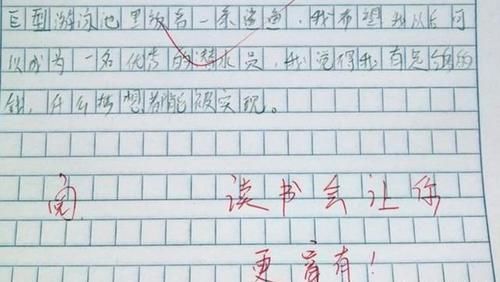 巨型游泳池里放着一条鲨鱼，我希望我以后可
以成为一名优秀的潜水员，我觉得我有足够的
钱，什么梦想都能被实现。
阅 读书会让你
更富有！